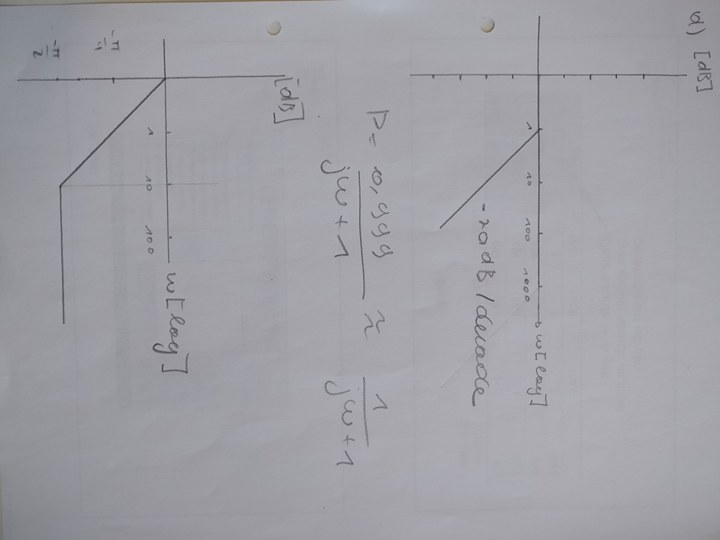 d) [dB]
1 10 100 1000 ω [log]
-20 dB / decade
P = 0,999 / jω + 1 ≈ 1 / jω + 1
[dB]
1 10 100 ω [log]
-π/4
-π/2